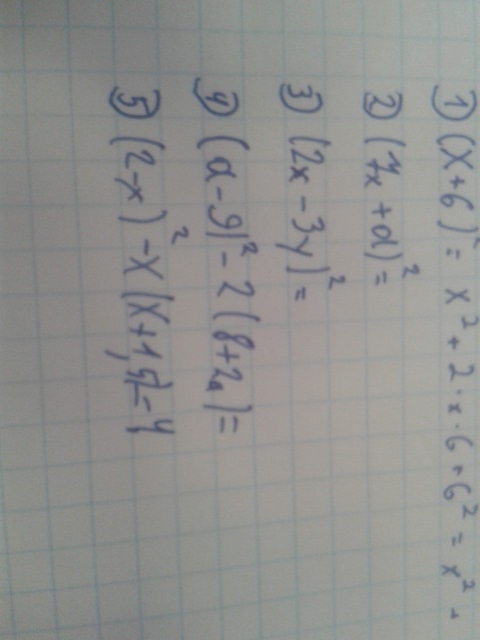 1) (x+6)² = x² + 2·x·6+6² = x² +
2) (7x+a)² =
3) (2x-3y)² =
4) (a-9)² - 2(8+2a) =
5) (2-x)² - x(x+1,5)=4